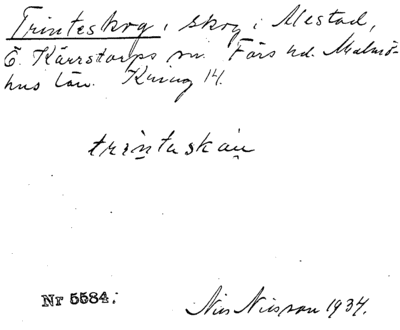 Trinteskog, skog i Mestad,
Ö. Kärrstorps sn. Färs hd. Malmö-
hus län. Kuing 14.
trintuskáu
Nr 5584.
Nils Nilsson 1934.